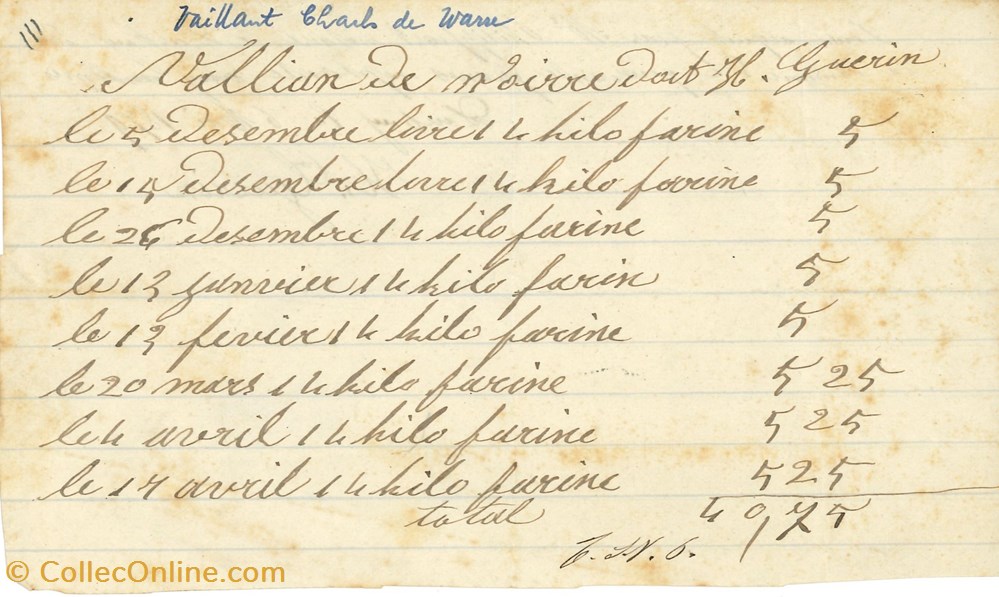 111
Vaillant Charles de Warre
Vallian de Woirre doit H. Guerin
le 5 desembre livre 14 kilo farine 5
le 14 desembre livre 14 kilo farine 5
le 26 desembre 14 kilo farine 5
le 13 janvier 14 kilo farin 5
le 13 fevier 14 kilo farine 5
le 20 mars 14 kilo farine 5 25
le 4 avril 14 kilo farine 5 25
le 17 avril 14 kilo farine 5 25
total 40,75
© CollecOnline.com